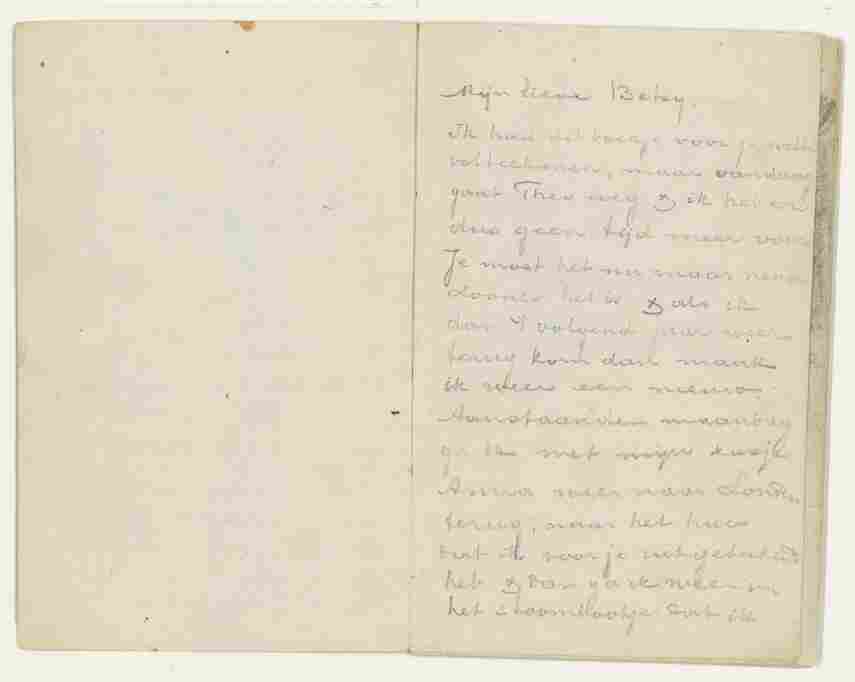 Mijn lieve Betsy.
Ik had dit boekje voor je willen
volteekenen, maar vandaag
gaat Theo weg & ik heb er
dus geen tijd meer voor
Je moet het nu maar nemen
zooals het is & als ik
dan 't volgend jaar weer
terug kom dan maak
ik weer een nieuw.
Aanstaanden maandag
ga ik met mijn zusje
Anna weer naar Londen
terug, naar het huis
dat ik voor je uitgeteekend
heb & dan ga ik weer in
het stoombootje dat ik